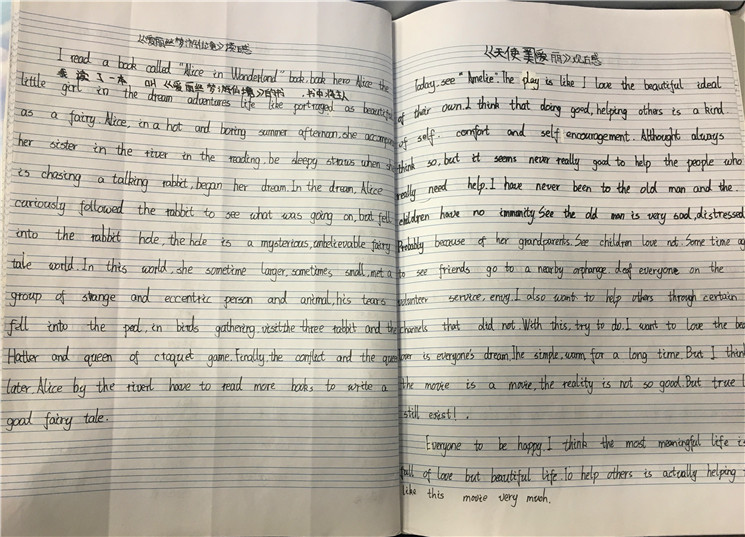 《爱丽丝梦游仙境》读后感
I read a book called "Alice in Wonderland" book. book hero Alice the
我 读 了 一本 叫 《爱丽丝梦游仙境》的书 .书中的主人
little girl in the dream adventures life like portraged as beautiful
as a fairy Alice, in a hot and boring summer afternoon, she accompany
her sister in the river in the reading, be sleepy straws when she
is chasing a talking rabbit, began her dream. In the dream, Alice
curiously followed the rabbit to see what was going on, but fell
into the rabbit hole, the hole is a mysterious, unbelievable fairy
tale world. In this world, she sometime larger, sometimes small, met a
group of strange and eccentric person and animal, his tears
fell into the pool, in birds gathering, visit the three rabbit and the
Hatter and queen of croquet game. Finally the conflict and the queen
later. Alice by the river I have to read more books to write a
good fairy tale.
《天使爱美丽》观后感
Today, see "Amelie". The play is like I love the beautiful ideal
of their own. I think that doing good, helping others is a kind
of self. comfort and self encouragement. Althought always
think so, but it seems never really good to help the people who
really need help. I have never been to the old man and the.
children have no immanity. See the old man is very sad, distressed
Probably because of her grandparents. See children love not. Some time ag
to see friends go to a nearby orphange. deaf everyone on the
volunteer service, envy. I also want to help others through certain
channels that did not. With this, try to do. I want to love the bea
over is everyone's dream. The simple, warm for a long time. But I think
the movie is a movie, the reality is not so good. But true l
still exist! .
Everyone to be happy. I think the most meaningful life is
full of love but beautiful life. To help others is actually helping
like this movie very much.